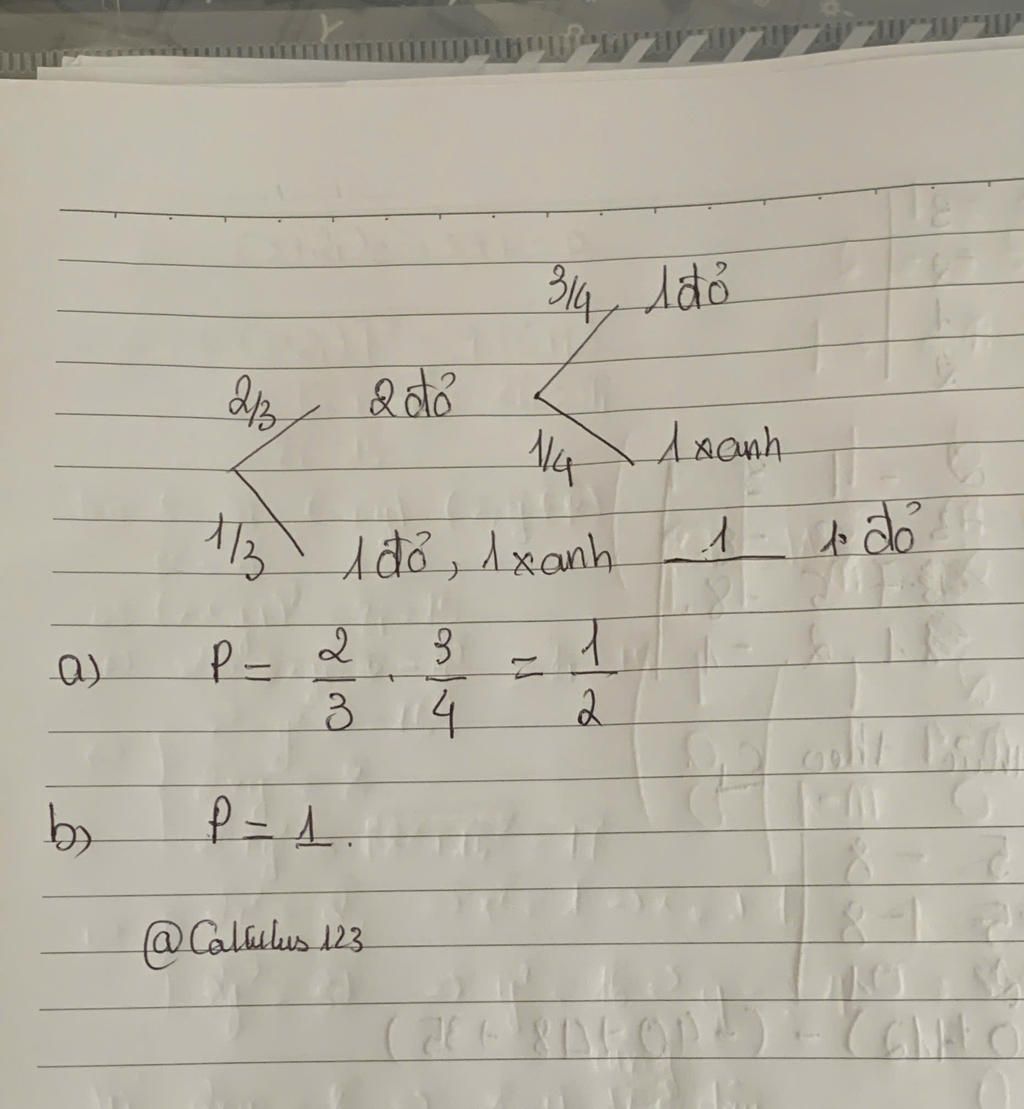 3/4 1 đỏ
2/3 2 đỏ
1/4 1 xanh
1/3 1 đỏ, 1 xanh 1 1 đỏ
a) P = 2/3 . 3/4 = 1/2
b) P = 1.
@Calculus 123